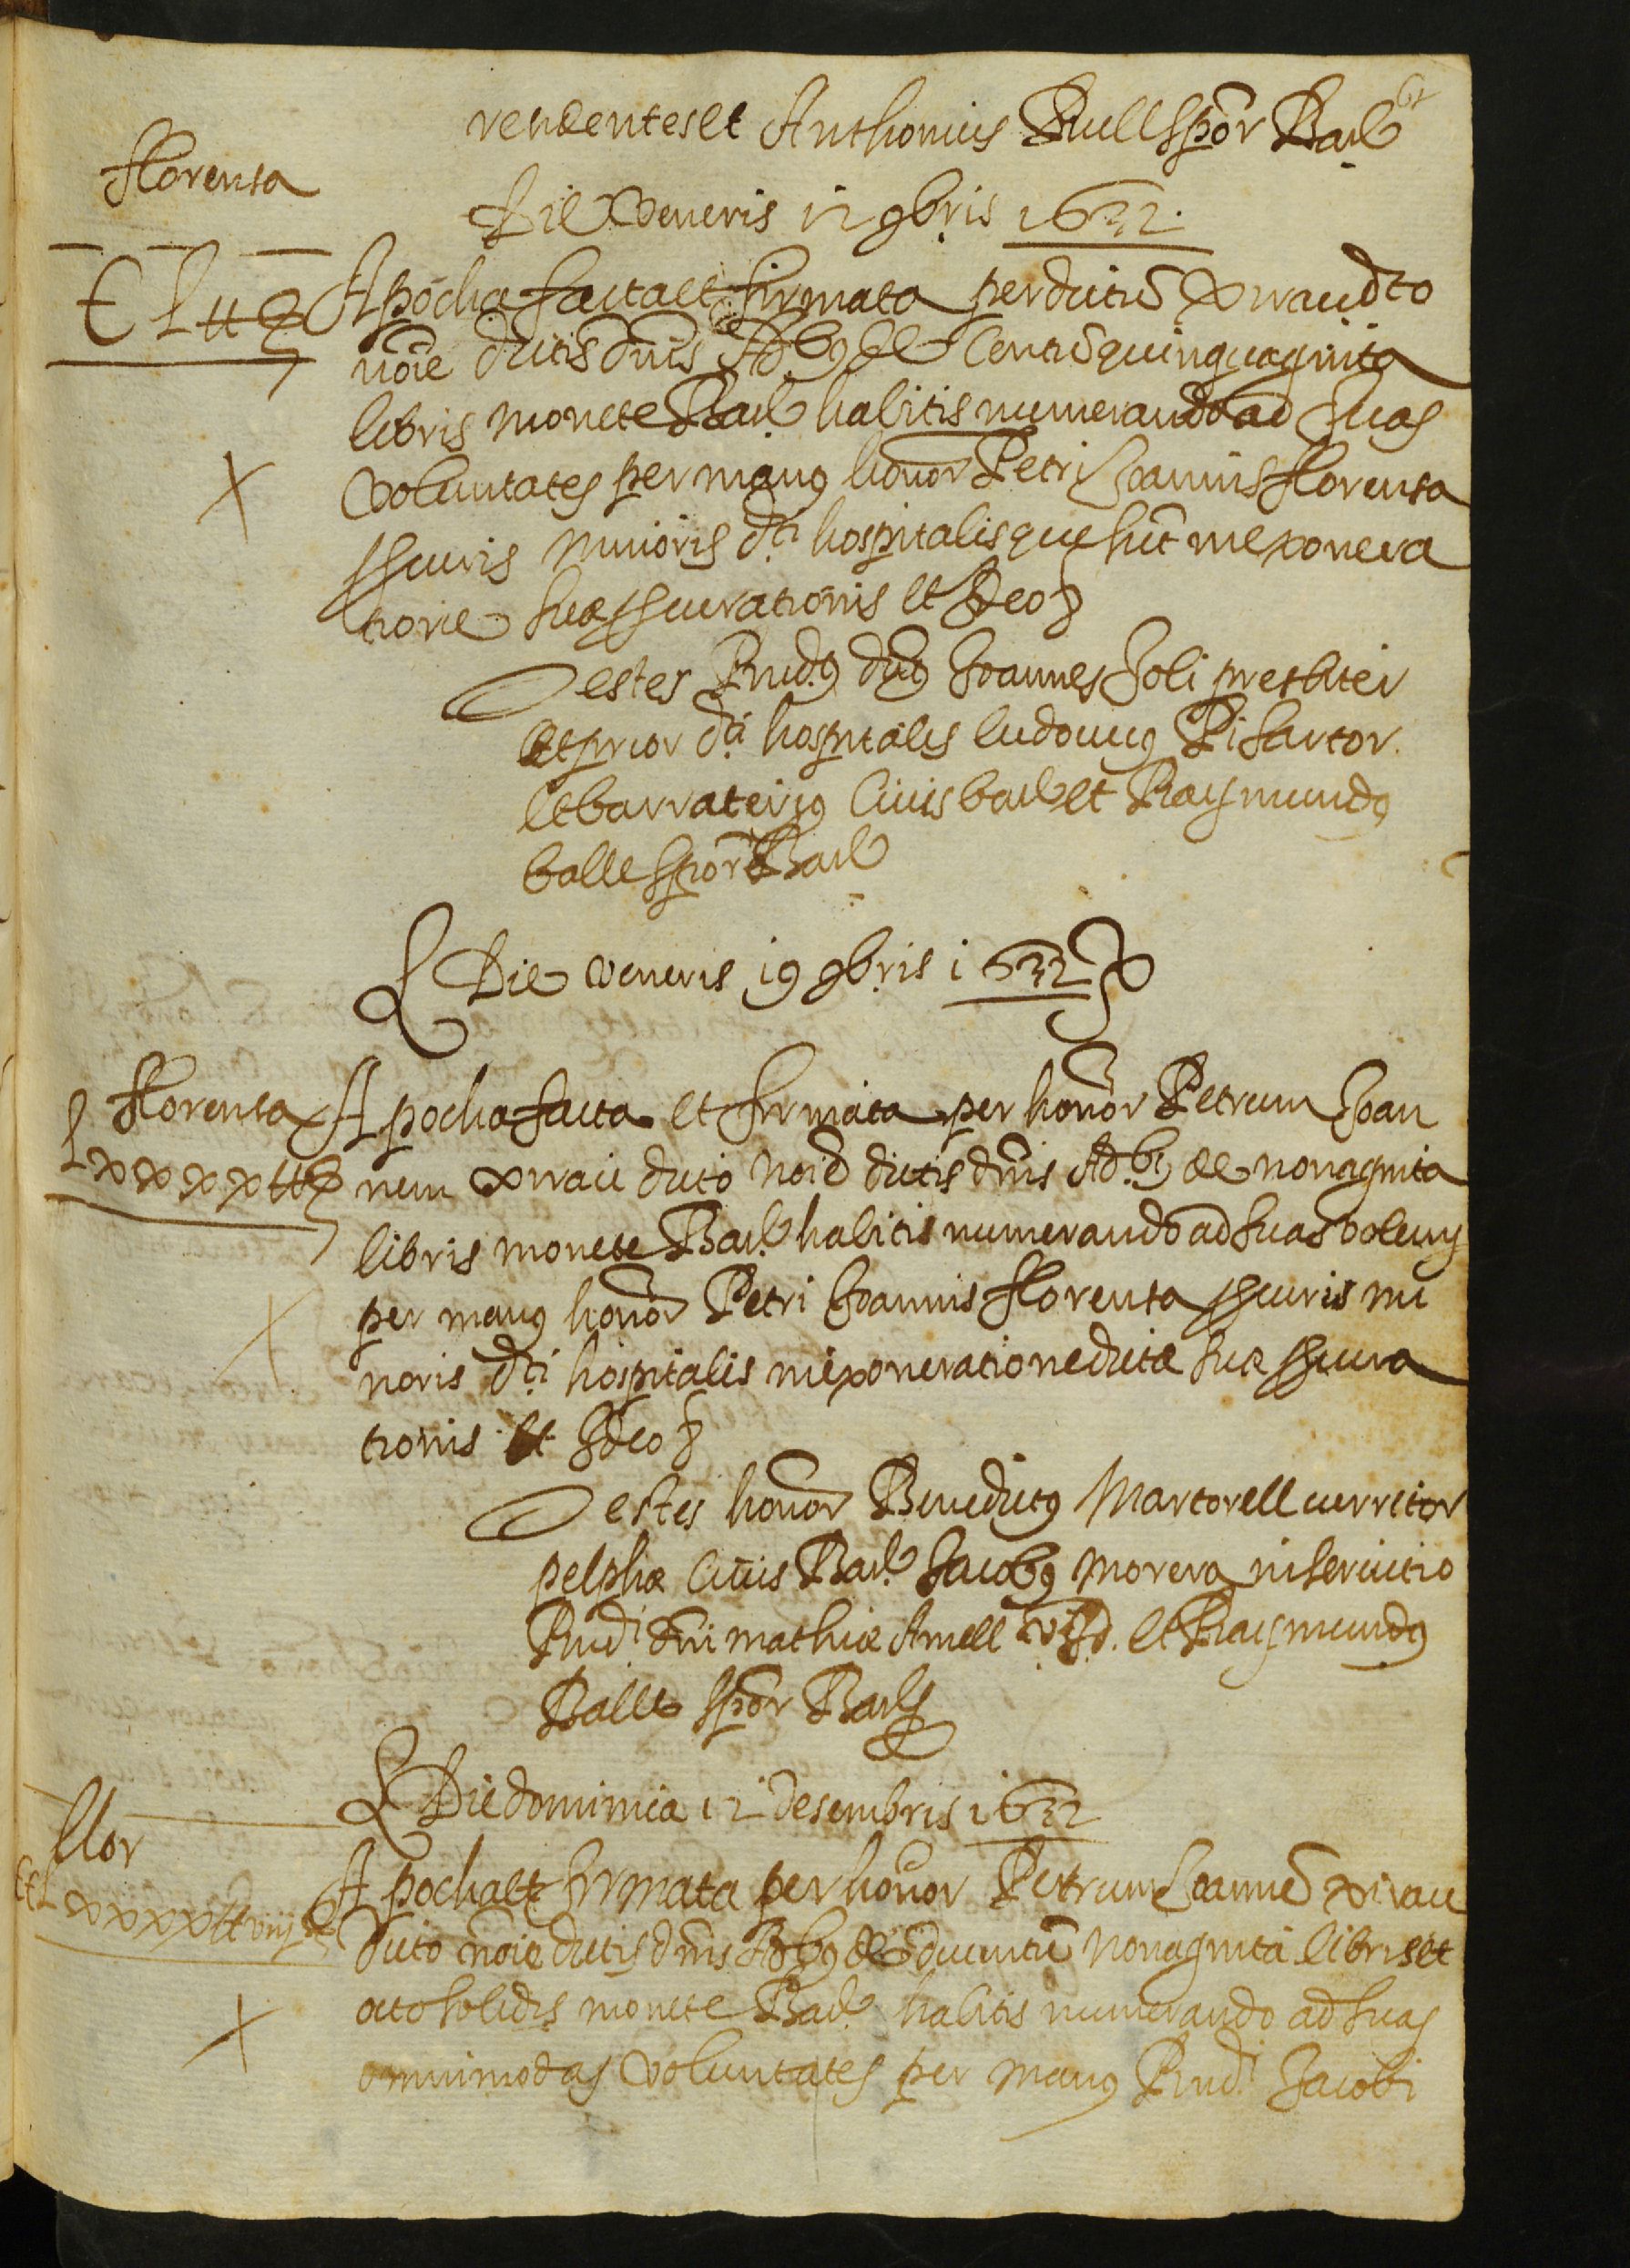 rendentes et Anthonius Rull spōr Barl
florensa
Die Veneris 12 9bris 1632.
C L ₶
Apocha facta et firmata per dictū Xirau dcto
nōie dictis dn̄is Adbꝯ de Centū quinquaginta
libris monete Barl habitis numerando ad suas
voluntates per manꝯ honor Petri Joannis florensa
scuris minoris dci hospitalis que sūt in exonera
tione suæ scurationis et Ideo
Testes Rndꝯ dn̄s Joannes Soli presbiter
et prior dci hospitalis ludovicꝯ Pi sartor
et barraterius Civis barl et Raymundꝯ
balle spōr Barl
Die Veneris 19 9bris 1632
florensa
Apocha facta et firmata per honōr Petrum Joan
Lxxxx ₶
nem xirau dicto nōie dictis dn̄is Adbꝯ de nonaginta
libris monete Barl habitis numerando ad suas volun
per manꝯ honōr Petri Joannis florensa scuris mi
noris dci hospitalis in exoneratione dictæ suæ scura
tionis et Ideo
Testes honōr Benedictꝯ Martorell curritor
pelphæ Civis Barl Jacobꝯ Morera in servitio
Rndi dn̄i mathiæ Amell et Raymundꝯ
Balle spōr Barl
Die dominica 12 desembris 1632
flor
Apocha et firmata per honōr Petrum Joannē xirau
CCLxxxx ₶ viij
dicto nōie dictis dn̄is Adbꝯ de ducentū nonaginta libris et
octo solidis monete Barl habitis numerando ad suas
omnimodas voluntates per manꝯ Rndi Jacobi